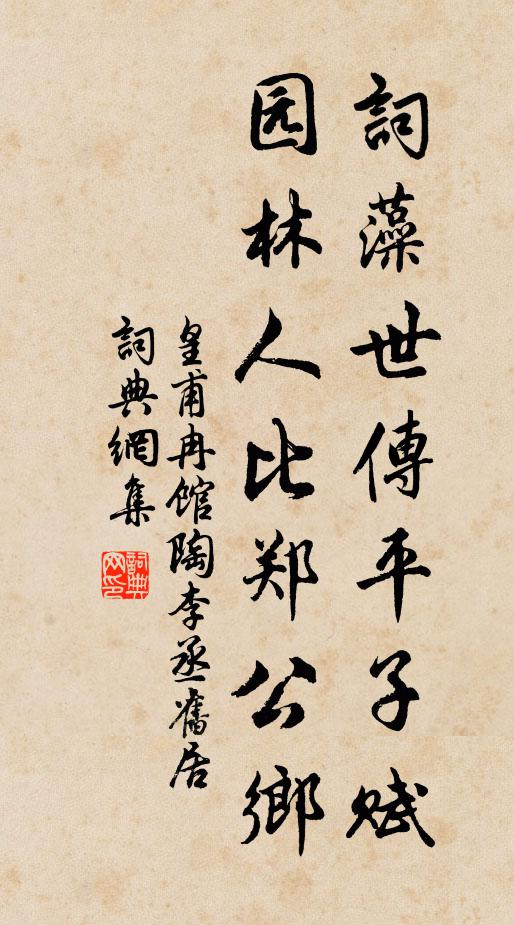 詞藻世傳平子賦
园林人比郑公鄉
皇甫冉馆陶李丞舊居
詞典網集
詞典网印